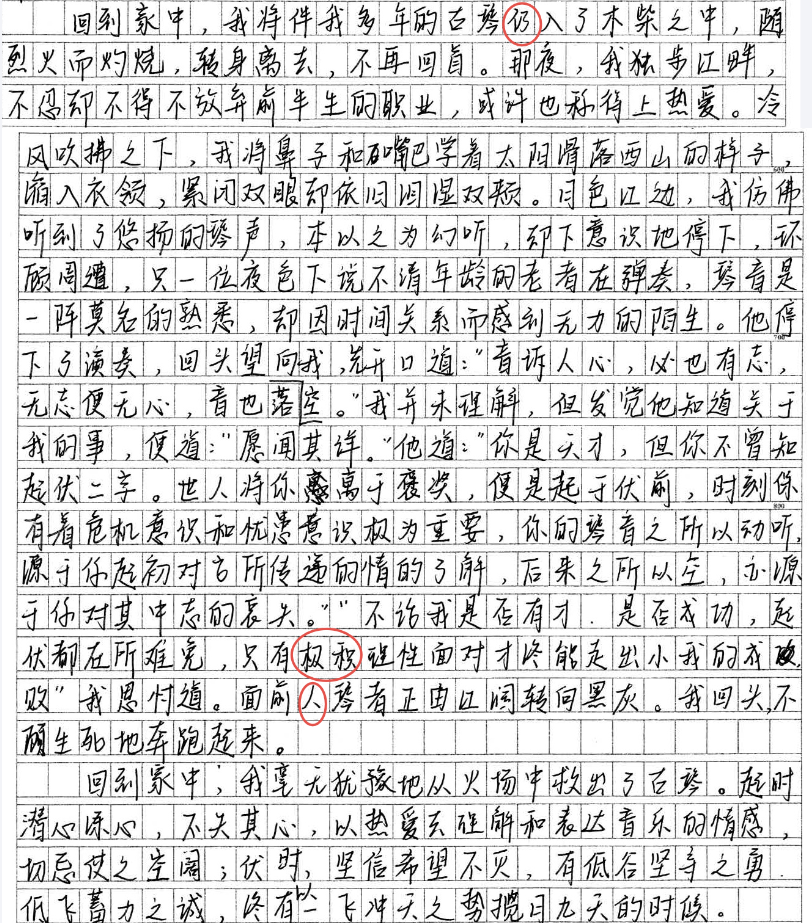 回到家中，我将伴我多年的古琴仍入了木柴之中，随
烈火而灼烧，转身离去，不再回首。那夜，我独步江畔，
不忍却不得不放弃前半生的职业，或许也称得上热爱。冷
风吹拂之下，我将鼻子和嘴巴学着太阳滑落西山的样子，
缩入衣领，紧闭双眼却依旧泪湿双颊。月色江边，我仿佛
听到了悠扬的琴声，本以之为幻听，却下意识地停下，环
顾周遭，只一位夜色下说不清年龄的老者在弹奏，琴音是
一阵莫名的熟悉，却因时间关系而感到无力的陌生。他停
下了演奏，回头望向我，先开口道："音诉人心，必也有志，
无志便无心，音也落空。"我并未理解，但发觉他知道关于
我的事，便道："愿闻其详。"他道："你是天才，但你不曾知
起伏二字。世人将你高于褒奖，便是起于伏前，时刻保
有着危机意识和忧患意识极为重要，你的琴音之所以动听，
源于你起初对音所传递的情的了解，后来之所以空，亦源
于你对其中志的丧失。""不论我是否有才，是否成功，起
伏都在所难免，只有极积理性面对才终能走出小我的成败
败"我思忖道。面前人琴者正由江阔转向黑灰。我回头，不
顾生死地奔跑起来。
回到家中，我毫无犹豫地从火场中救出了古琴。起时
潜心涤心，不失其心，以热爱去理解和表达音乐的情感，
切忌使之空阔；伏时，坚信希望不灭，有低谷坚守之勇
低飞蓄力之诚，终有以一飞冲天之势揽日九天的时候。